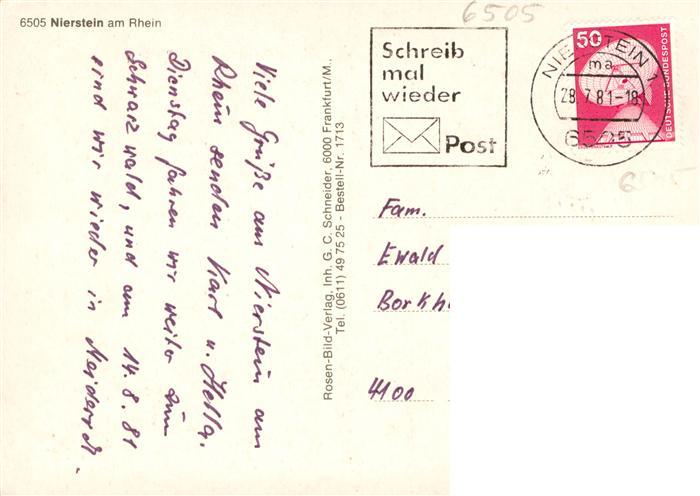 6505 Nierstein am Rhein
Viele Grüße aus Nierstein am
Rhein senden Karl u. Hella.
Dienstag fahren wir weiter zum
Schwarzwald, und am 14.8.81
sind wir wieder in
Rosen-Bild-Verlag, Inh. G. C. Schneider, 6000 Frankfurt/M.,
Tel. (0611) 49 75 25 - Bestell-Nr. 1713
6505
Schreib
mal
wieder
Post
NIERSTEIN 1
ma
28.7.81-18
6505
50
DEUTSCHE BUNDESPOST
Fam.
Ewald
Borkh
4100